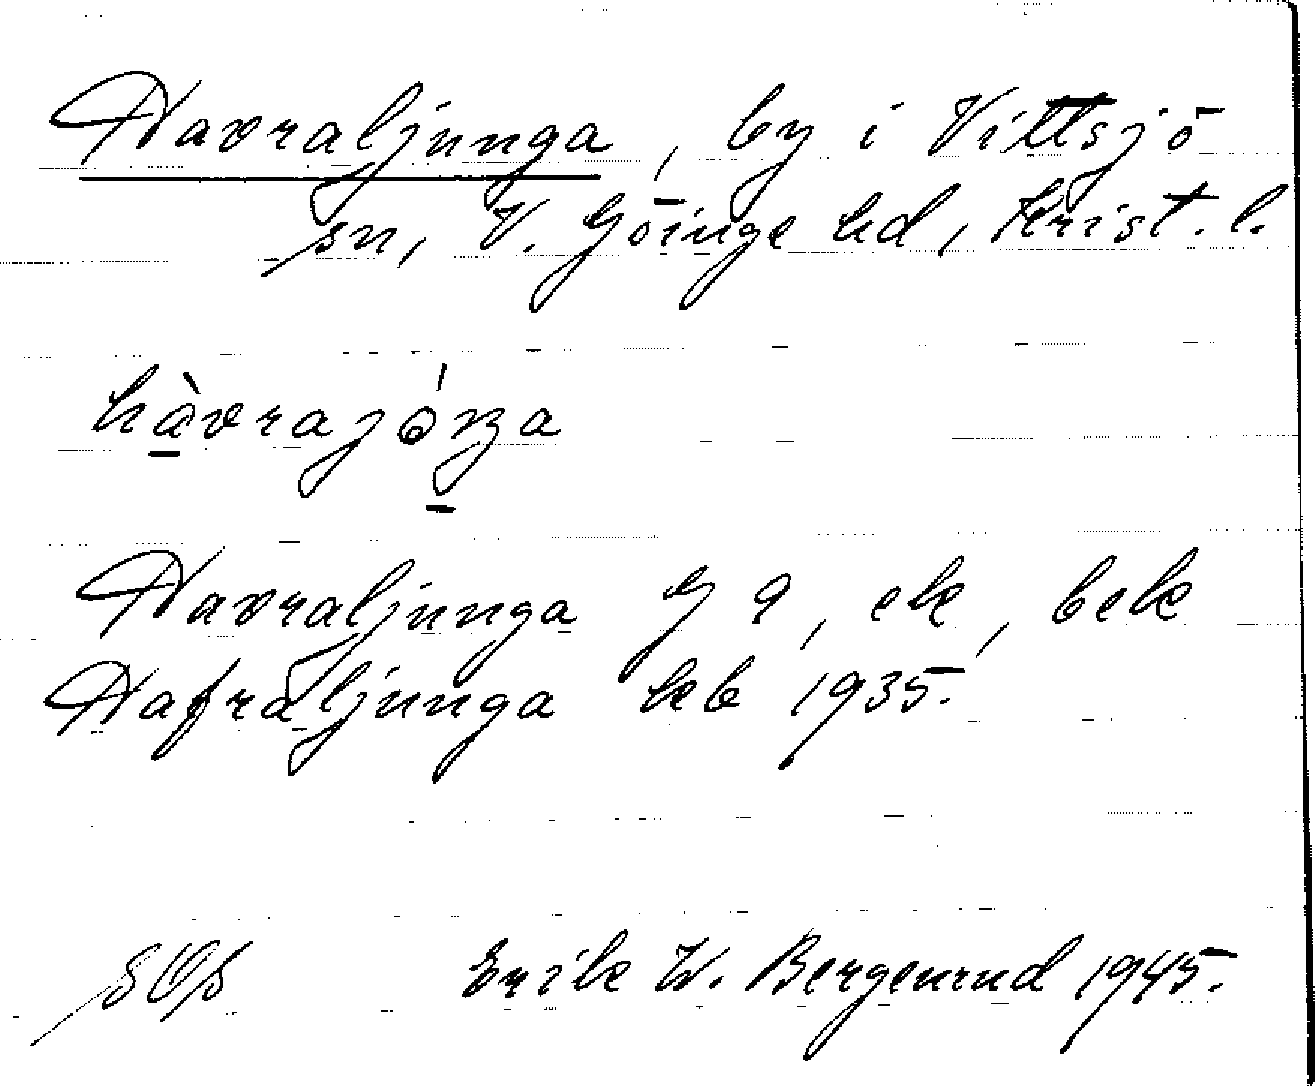 Havraljunga, by i Vittsjö
sn, V. Göinge hd, Krist. l.
Havraljunga G 9, ek, bek
Hafraljunga kb 1935.
SOS Erik W. Bergenrud 1945.